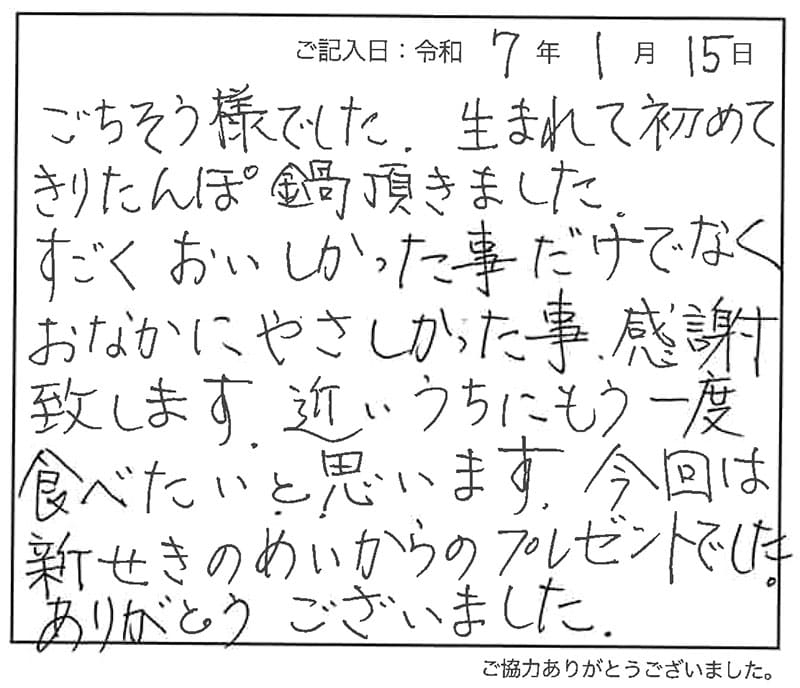 ご記入日：令和 7 年 1 月 15 日
ごちそう様でした. 生まれて初めて
きりたんぽ鍋頂きました.
すごくおいしかった事だけでなく
おなかにやさしかった事、感謝
致します. 近いうちにもう一度
食べたいと思います. 今回は
新せきのめいからのプレゼントでした.
ありがとうございました.
ご協力ありがとうございました。